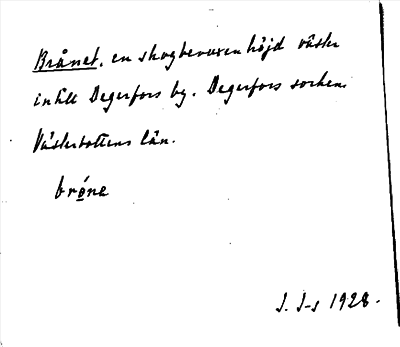 Brånet, en skogbevuxen höjd väster
intill Degerfors by. Degerfors socken.
Västerbottens län.
bróne
J. J-s 1928.